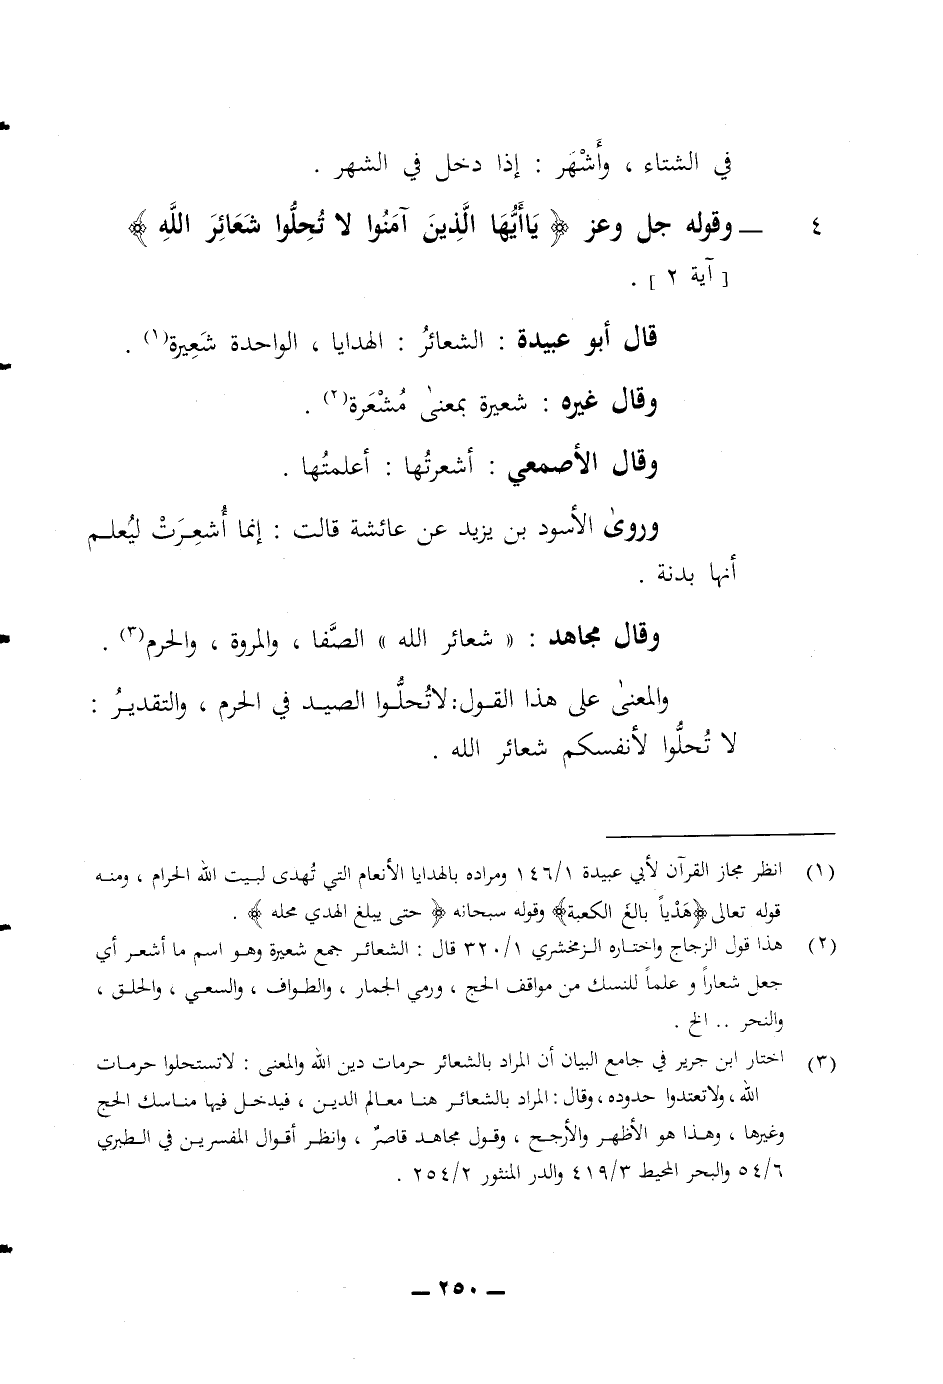 في الشتاء ، وأَشْهَر : إذا دخل في الشهر .
٤ ــ وقوله جل وعز ﴿ يَاأَيُّهَا الَّذِينَ آمَنُوا لا تُحِلُّوا شَعَائِرَ اللَّهِ ﴾
[ آية ٢ ] .
قال أبو عبيدة : الشعائرُ : الهدايا ، الواحدة شَعِيرة(١) .
وقال غيره : شعيرة بمعنىٰ مُشْعَرة(٢) .
وقال الأصمعي : أشعرتُها : أعلمتُها .
وروىٰ الأسود بن يزيد عن عائشة قالت : إنما أُشعِرَتْ ليُعلم
أنها بدنة .
وقال مجاهد : « شعائر الله » الصَّفا ، والمروة ، والحرم(٣) .
والمعنىٰ على هذا القول: لاتُحلُّوا الصيد في الحرم ، والتقديرُ :
لا تُحلُّوا لأنفسكم شعائر الله .
(١) انظر مجاز القرآن لأبي عبيدة ١٤٦/١ ومراده بالهدايا الأنعام التي تُهدى لبيت الله الحرام ، ومنه
قوله تعالى ﴿هَدْياً بالغَ الكعبة﴾ وقوله سبحانه ﴿ حتى يبلغ الهدي محله ﴾ .
(٢) هذا قول الزجاج واختاره الزمخشري ٣٢٠/١ قال : الشعائر جمع شعيرة وهو اسم ما أشعر أي
جعل شعاراً و علماً للنسك من مواقف الحج ، ورمي الجمار ، والطواف ، والسعي ، والحلق ،
والنحر .. الخ .
(٣) اختار ابن جرير في جامع البيان أن المراد بالشعائر حرمات دين الله والمعنى : لاتستحلوا حرمات
الله ، ولاتعتدوا حدوده ، وقال : المراد بالشعائر هنا معالم الدين ، فيدخل فيها مناسك الحج
وغيرها ، وهذا هو الأظهر والأرجح ، وقول مجاهد قاصرٌ ، وانظر أقوال المفسرين في الطبري
٥٤/٦ والبحر المحيط ٤١٩/٣ والدر المنثور ٢٥٤/٢ .
ــ ٢٥٠ ــ